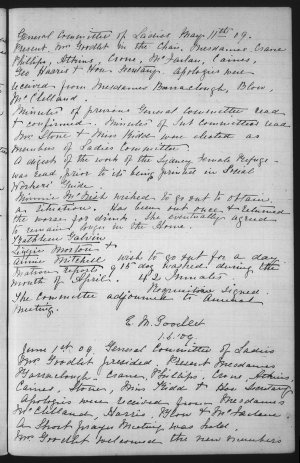 General Committee of Ladies May 11th 09.
Present. Mrs Goodlet in the Chair, Mesdames Crane
Phillips, Atkins, Crone, McFarlan, Carnes,
Geo Harris & Hon Secretary. Apologies were
received from Mesdames Barraclough, Blow,
McClelland.
Minutes of previous General Committee read
& confirmed. Minutes of Sub Committee read
Mrs Stone & Miss Kidd were elected as
members of Ladies Committee
A digest of the work of the Sydney Female Refuge
was read prior to its being printed in Social
Workers' Guide.
Minnie wished to go out to obtain
a situation. Has been out once & returned
the worse for drink. She eventually agreed
to remain longer in the Home.
Kathleen Galvin
Lizzie &
Annie Mitchell wish to go out for a day.
Matron reports washed during the
month of April. 48 Inmates
Requisition signed
The Committee adjourned to Annual
Meeting.
E. M. Goodlet
1.6.09
June 1st 09. General Committee of Ladies
Mrs Goodlet presided. Present Mesdames
Barraclough, Crane, Phillips, Crone, Atkins,
Carnes, Stone, Miss Kidd & Hon Secretary
Apologies were received from Mesdames
McClelland, Harris, Blow & McFarlane.
A Short Prayer Meeting was held.
Mrs Goodlet welcomed the new members